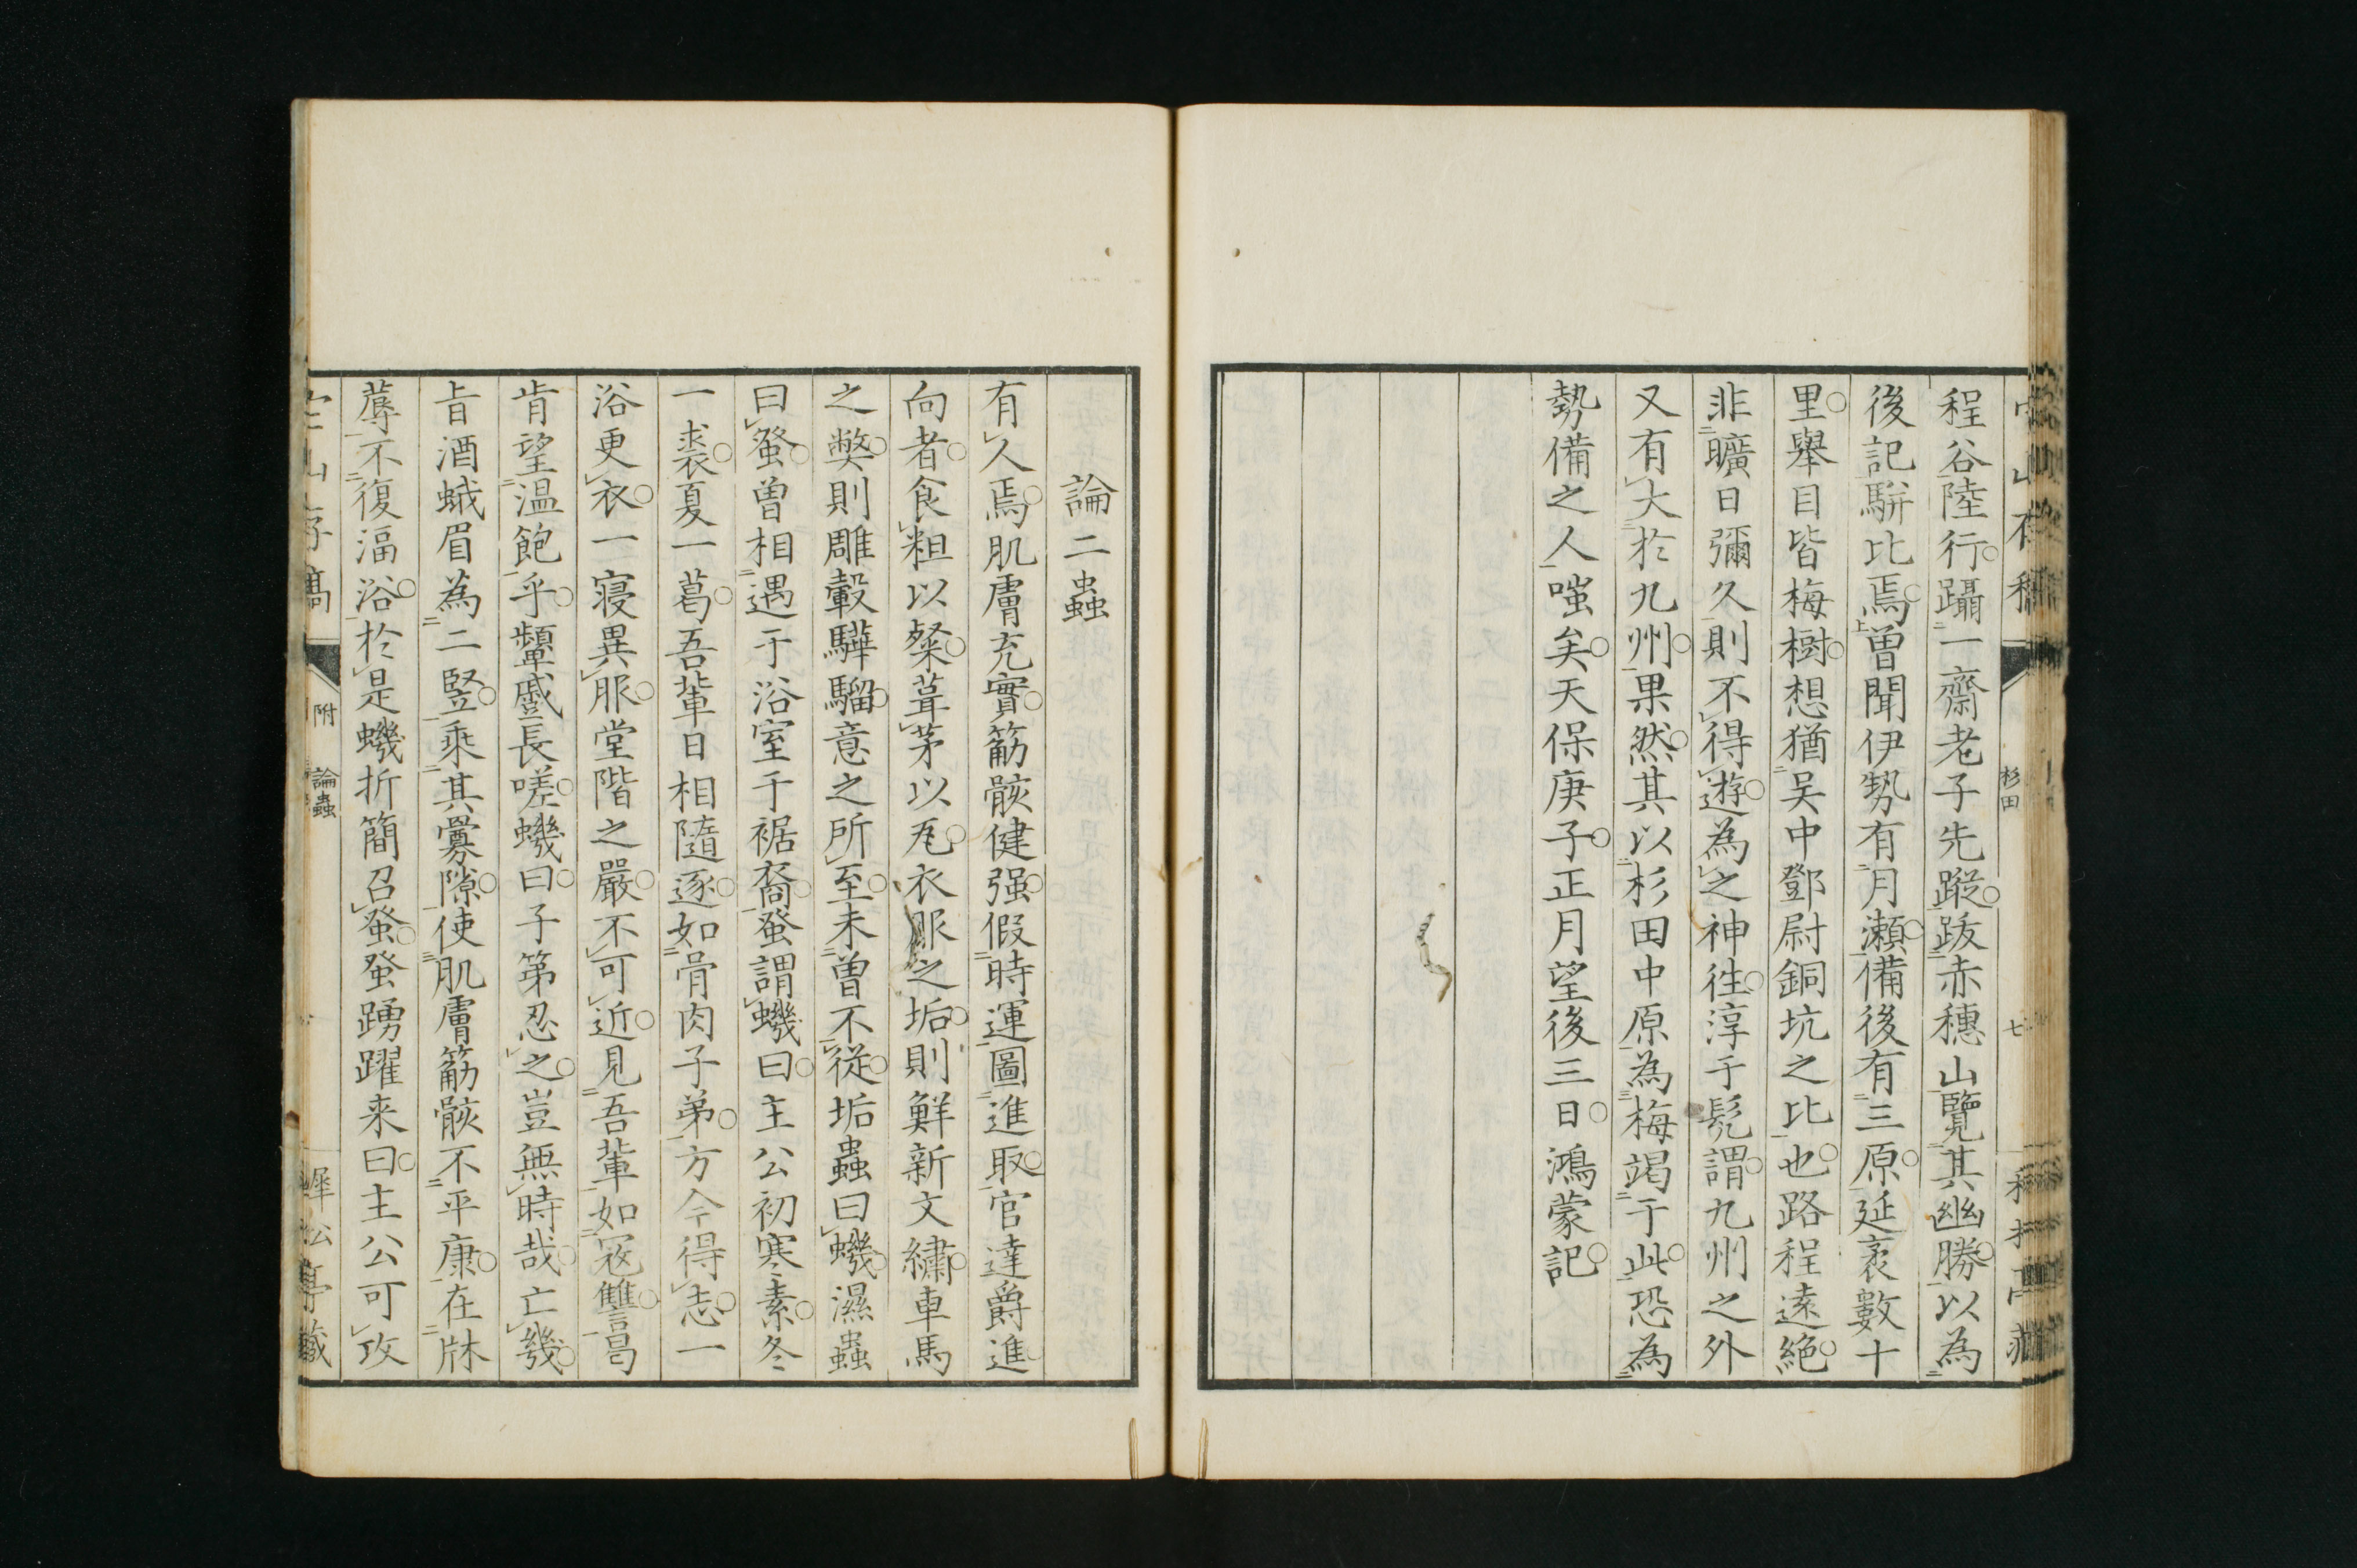 程谷陸行躡一齋老子先蹤跋赤穗山覽其幽勝以為
後記騈比焉曾聞伊勢有月瀬備後有三原延袤數十
里舉目皆梅樹想猶吴中鄧尉銅坑之比也路程遠絶
非曠日彌久則不得遊為之神往淳于髡謂九州之外
又有大於九州果然其以杉田中原為梅竭于此恐為
勢備之人嗤矣天保庚子正月望後三日鴻蒙記
杉田
七
論二蟲
有人焉肌膚充實筋骸健强假時運圖進取官達爵進
向者食粗以粲葺茅以瓦衣服之垢則鮮新文繡車馬
之弊則雕轂驊騮意之所至未曾不從垢蟲曰蟣濕蟲
曰蛩曾相遇于浴室于裾裔蛩謂蟣曰主公初寒素冬
一裘夏一葛吾輩日相隨逐如骨肉子弟方今得志一
浴更衣一寝異服堂階之嚴不可近見吾輩如冦讐曷
肯望温飽乎顰蹙長嗟蟣曰子第忍之豈無時哉亡幾
旨酒蛾眉為二竪乘其釁隙使肌膚筋骸不平康在牀
蓐不復湢浴於是蟣折簡召蛩蛩踴躍来曰主公可攻
附
論蟲